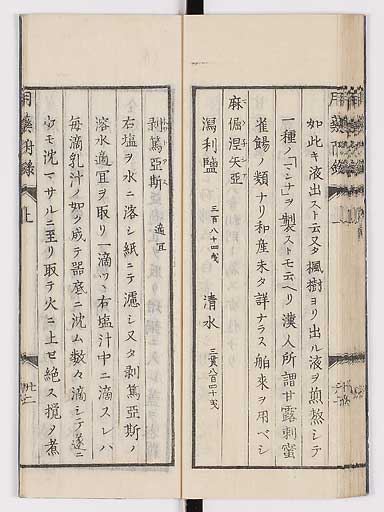 如此キ液出スト云又楓樹ヨリ出ル液ヲ煎熬シテ
一種ノ「マンナ」ヲ製ストモ云ヘリ漢人所謂甘露刺蜜
雀餳ノ類ナリ和産未タ詳ナラス舶来ヲ用ベシ
麻倔涅矢亞
瀉利鹽 三百八十四戔 清水 三貫八百四十戔
剥篤亞斯 適宜
右塩ヲ水ニ溶シ紙ニテ濾シ又タ剥篤亞斯ノ
溶水適宜ヲ取リ一滴ツヽ右塩汁中ニ滴スレハ
毎滴乳汁ノ如ク成テ器底ニ沈ム数々滴シテ遂ニ
ウモ沈マサルニ至リ取テ火ニ上セ絶ス攪タ煮
用藥附録 上